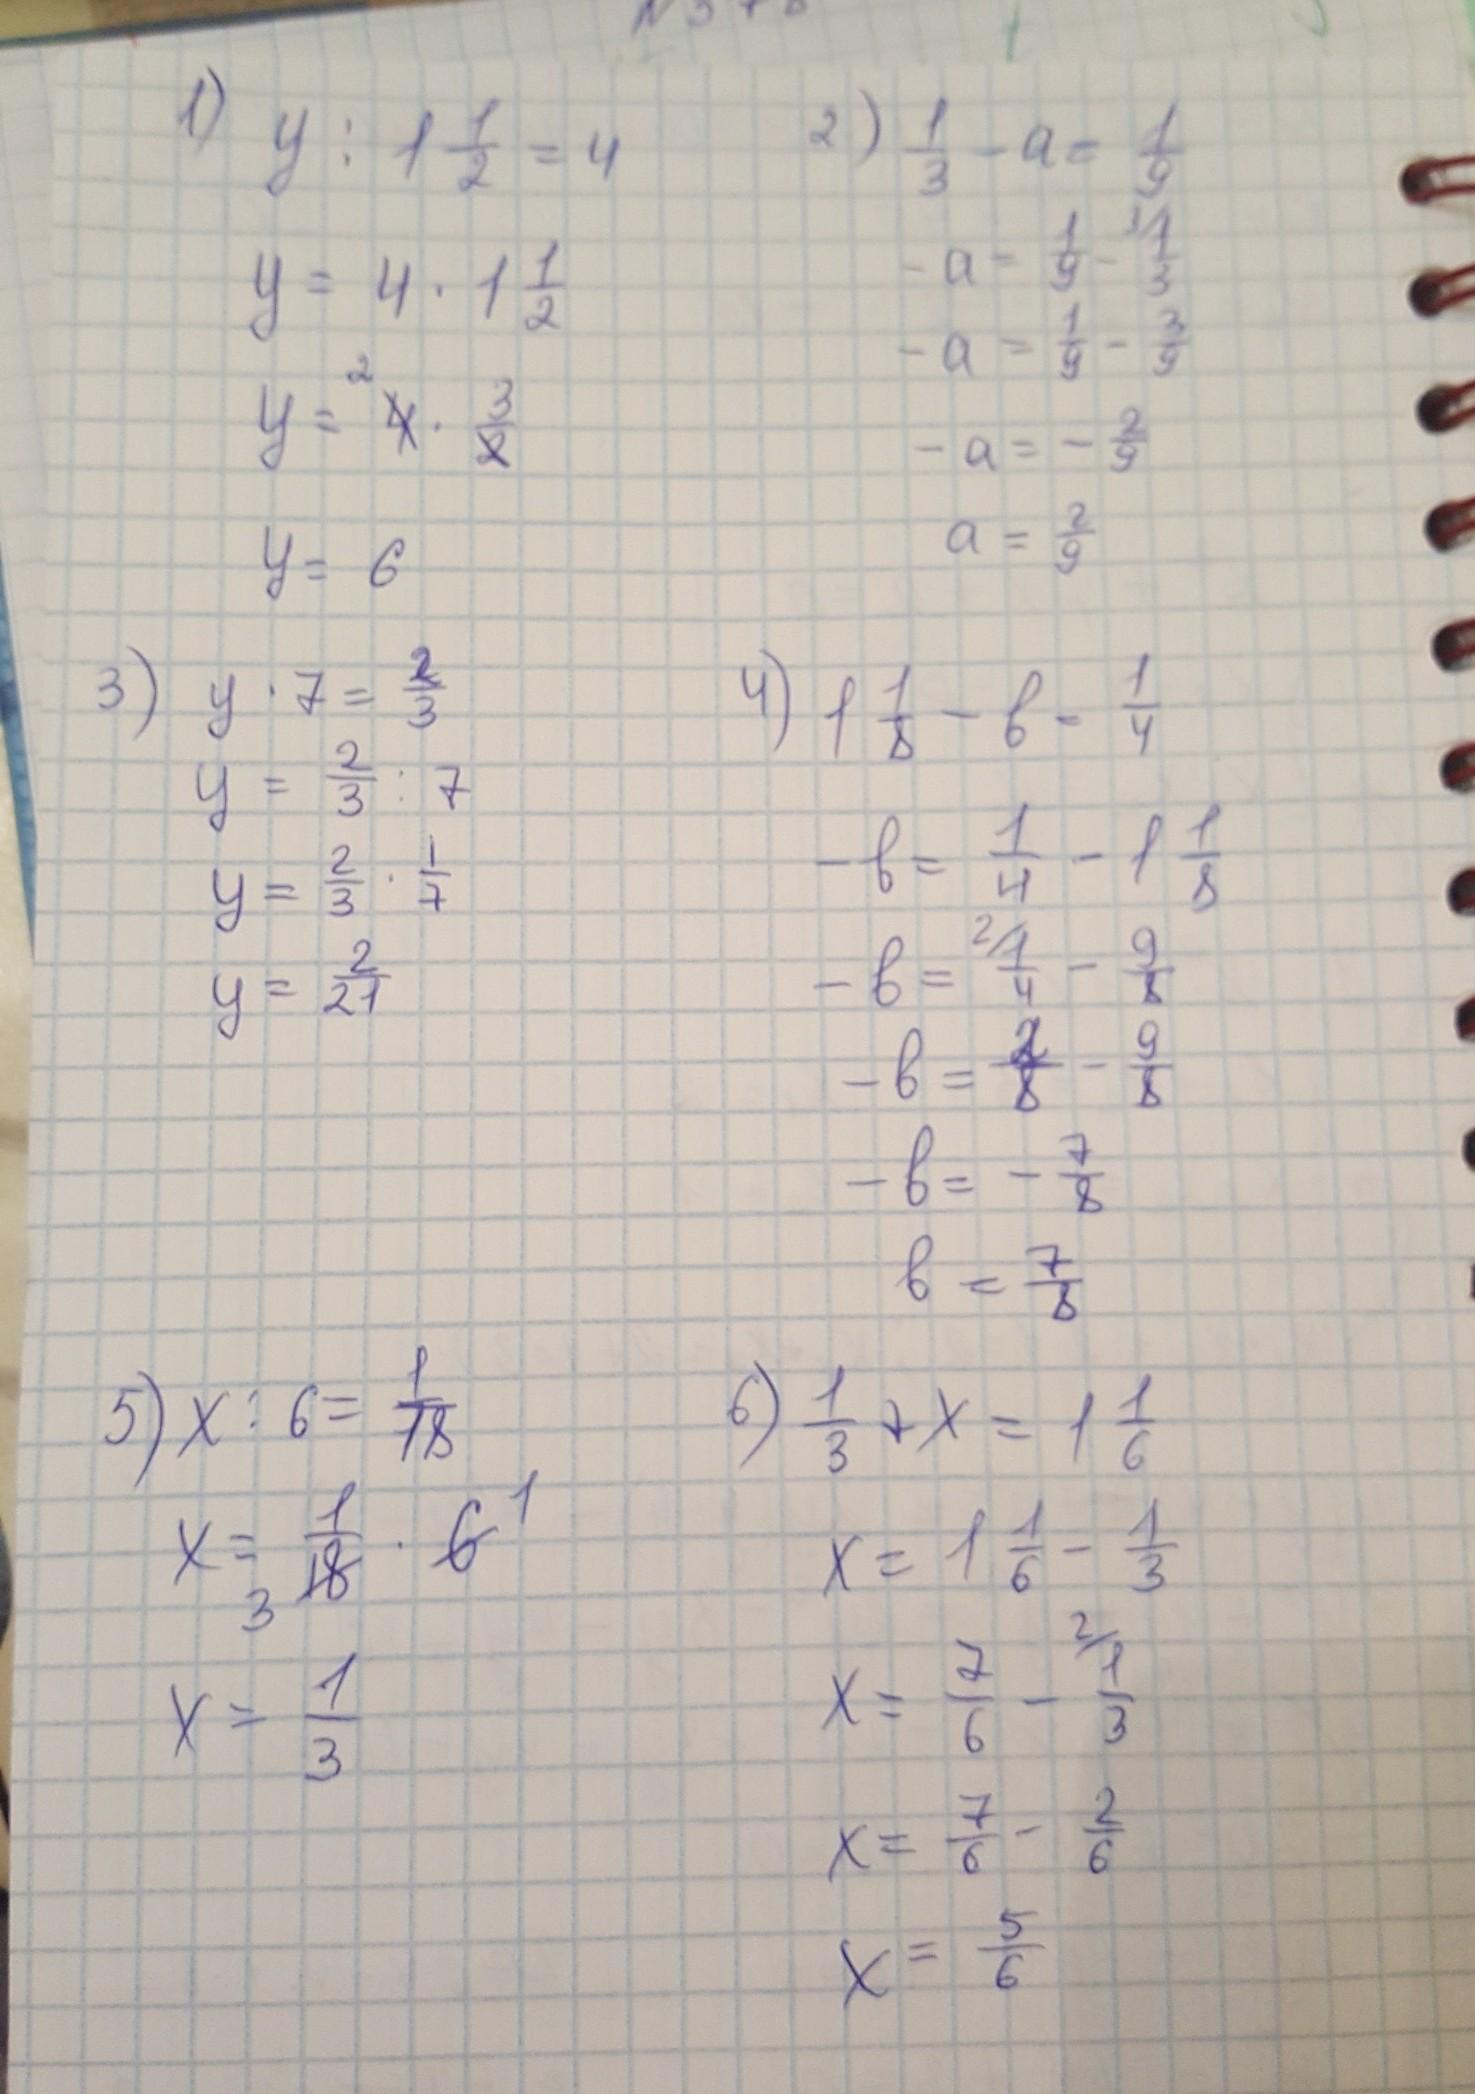 1) y : 1 1/2 = 4
y = 4 · 1 1/2
y = ² 4 · 3/2
y = 6
2) 1/3 - a = 1/9
- a = 1/9 - ³/ 1/3
- a = 1/9 - 3/9
- a = - 2/9
a = 2/9
3) y · 7 = 2/3
y = 2/3 : 7
y = 2/3 · 1/7
y = 2/21
4) 1 1/8 - в = 1/4
- в = 1/4 - 1 1/8
- в = ²/ 1/4 - 9/8
- в = 2/8 - 9/8
- в = - 7/8
в = 7/8
5) x : 6 = 1/18
x = 1/18 · 6 1
3
x = 1/3
6) 1/3 + x = 1 1/6
x = 1 1/6 - 1/3
x = 7/6 - ²/ 1/3
x = 7/6 - 2/6
x = 5/6